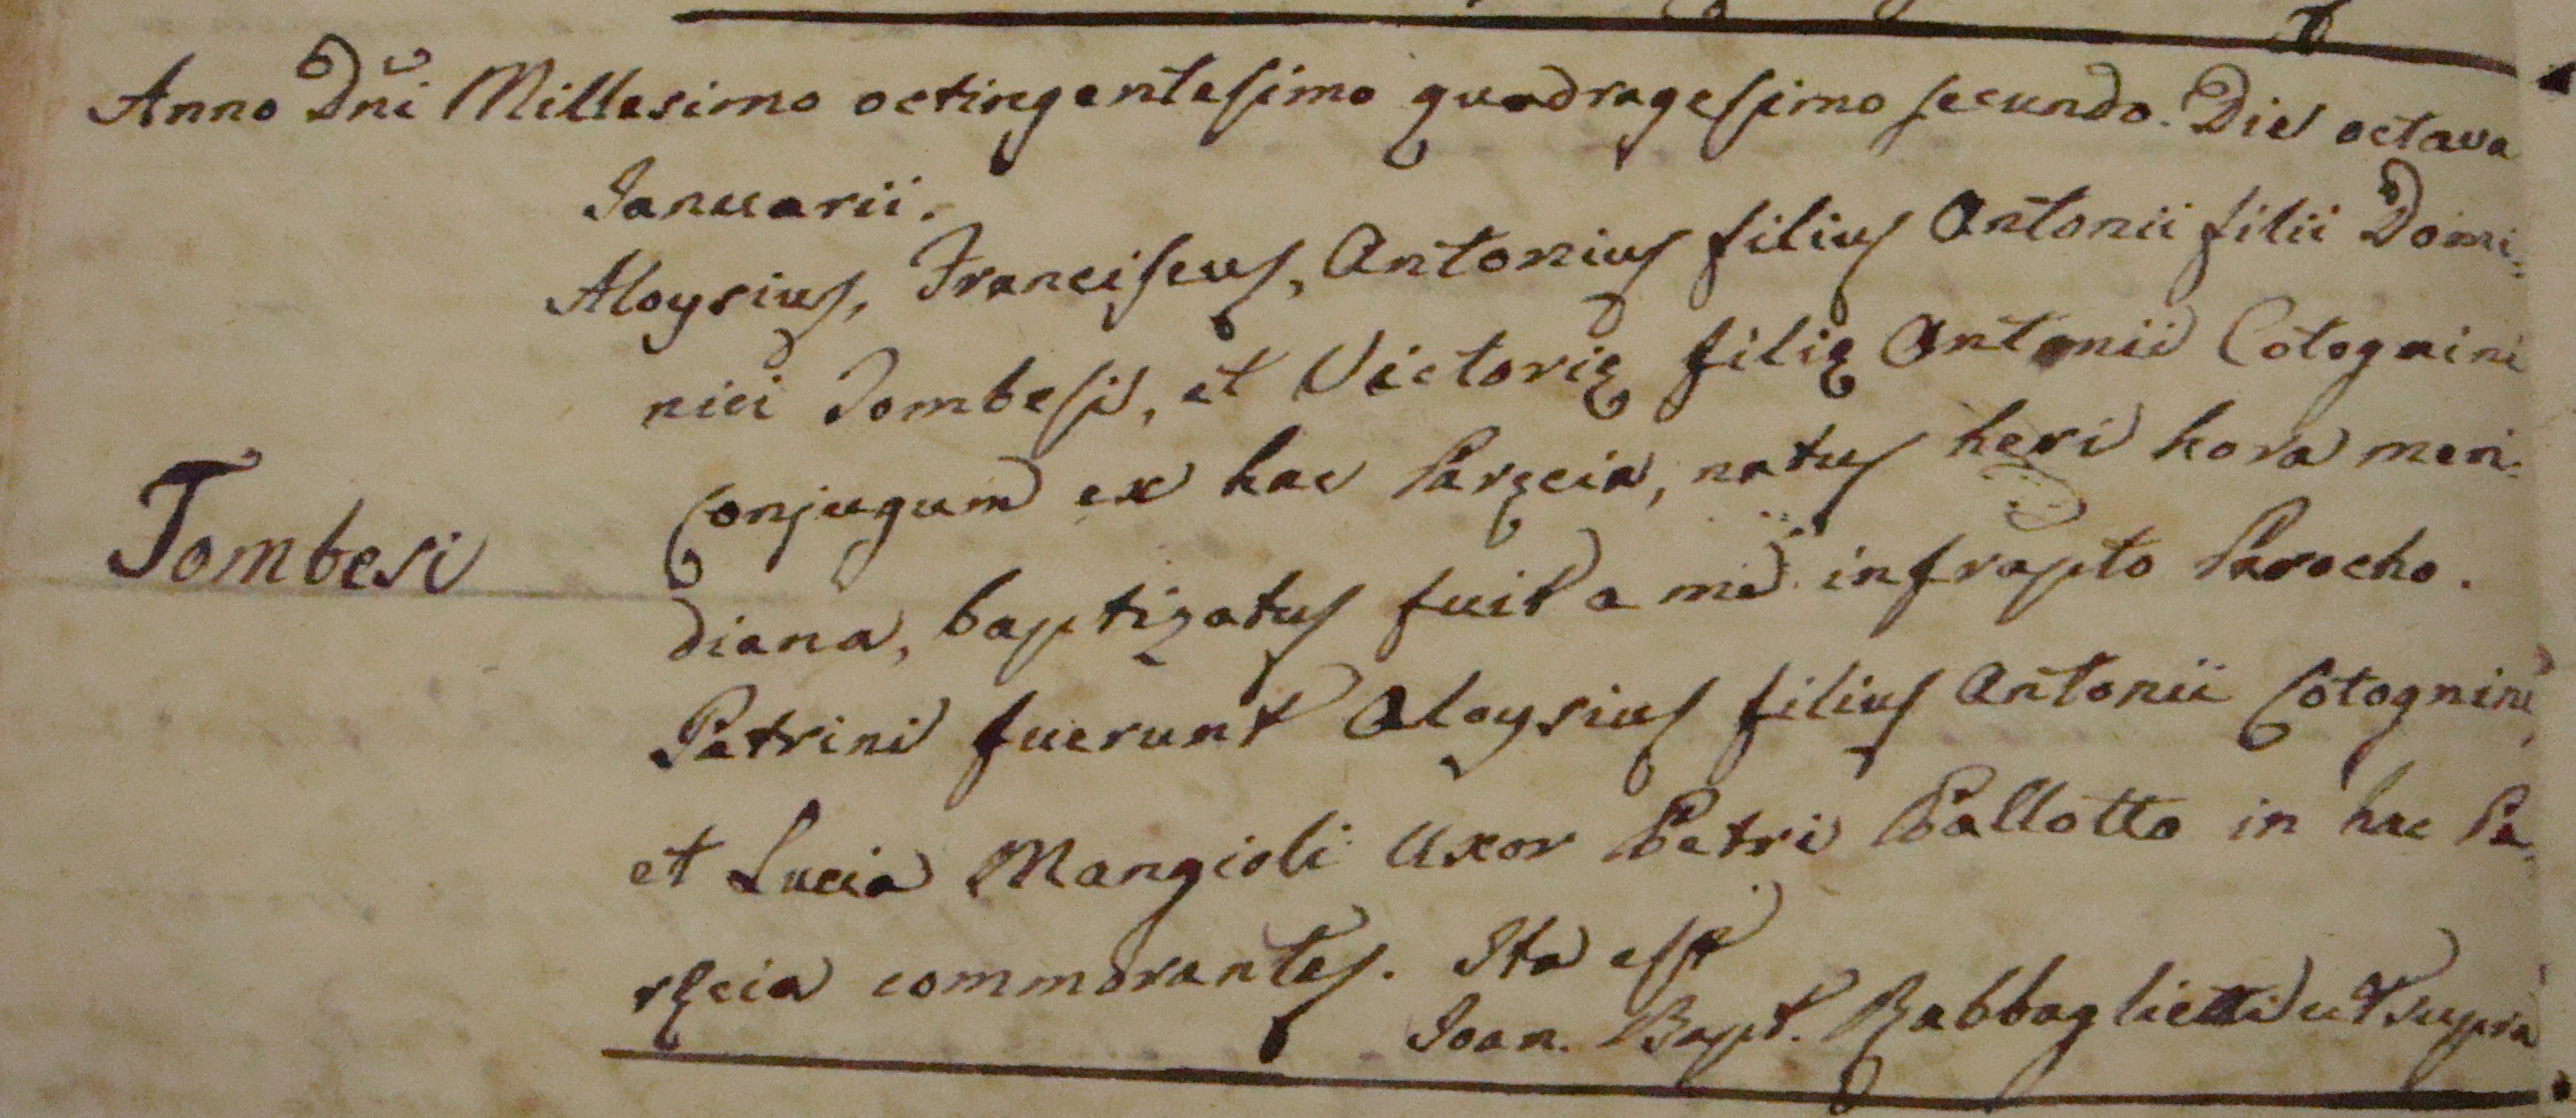 Anno Dñi Millesimo octingentesimo quadragesimo secundo. Die octava
Januarii.
Aloysius, Franciscus, Antonius filius Antonii filii Domi=
nici Tombesi, et Victorię filię Antonii Cotognini
Conjugum ex hac Paręcia, natus heri hora meri=
diana, baptizatus fuit a me infrapto Parocho.
Tombesi
Patrini fuerunt Aloysius filius Antonii Cotognini,
et Lucia Mangioli Uxor Petri Pallotto in hac Pa=
ręcia commorantes. Ita est
Joan. Bapt. Rabbaglietti ut supra